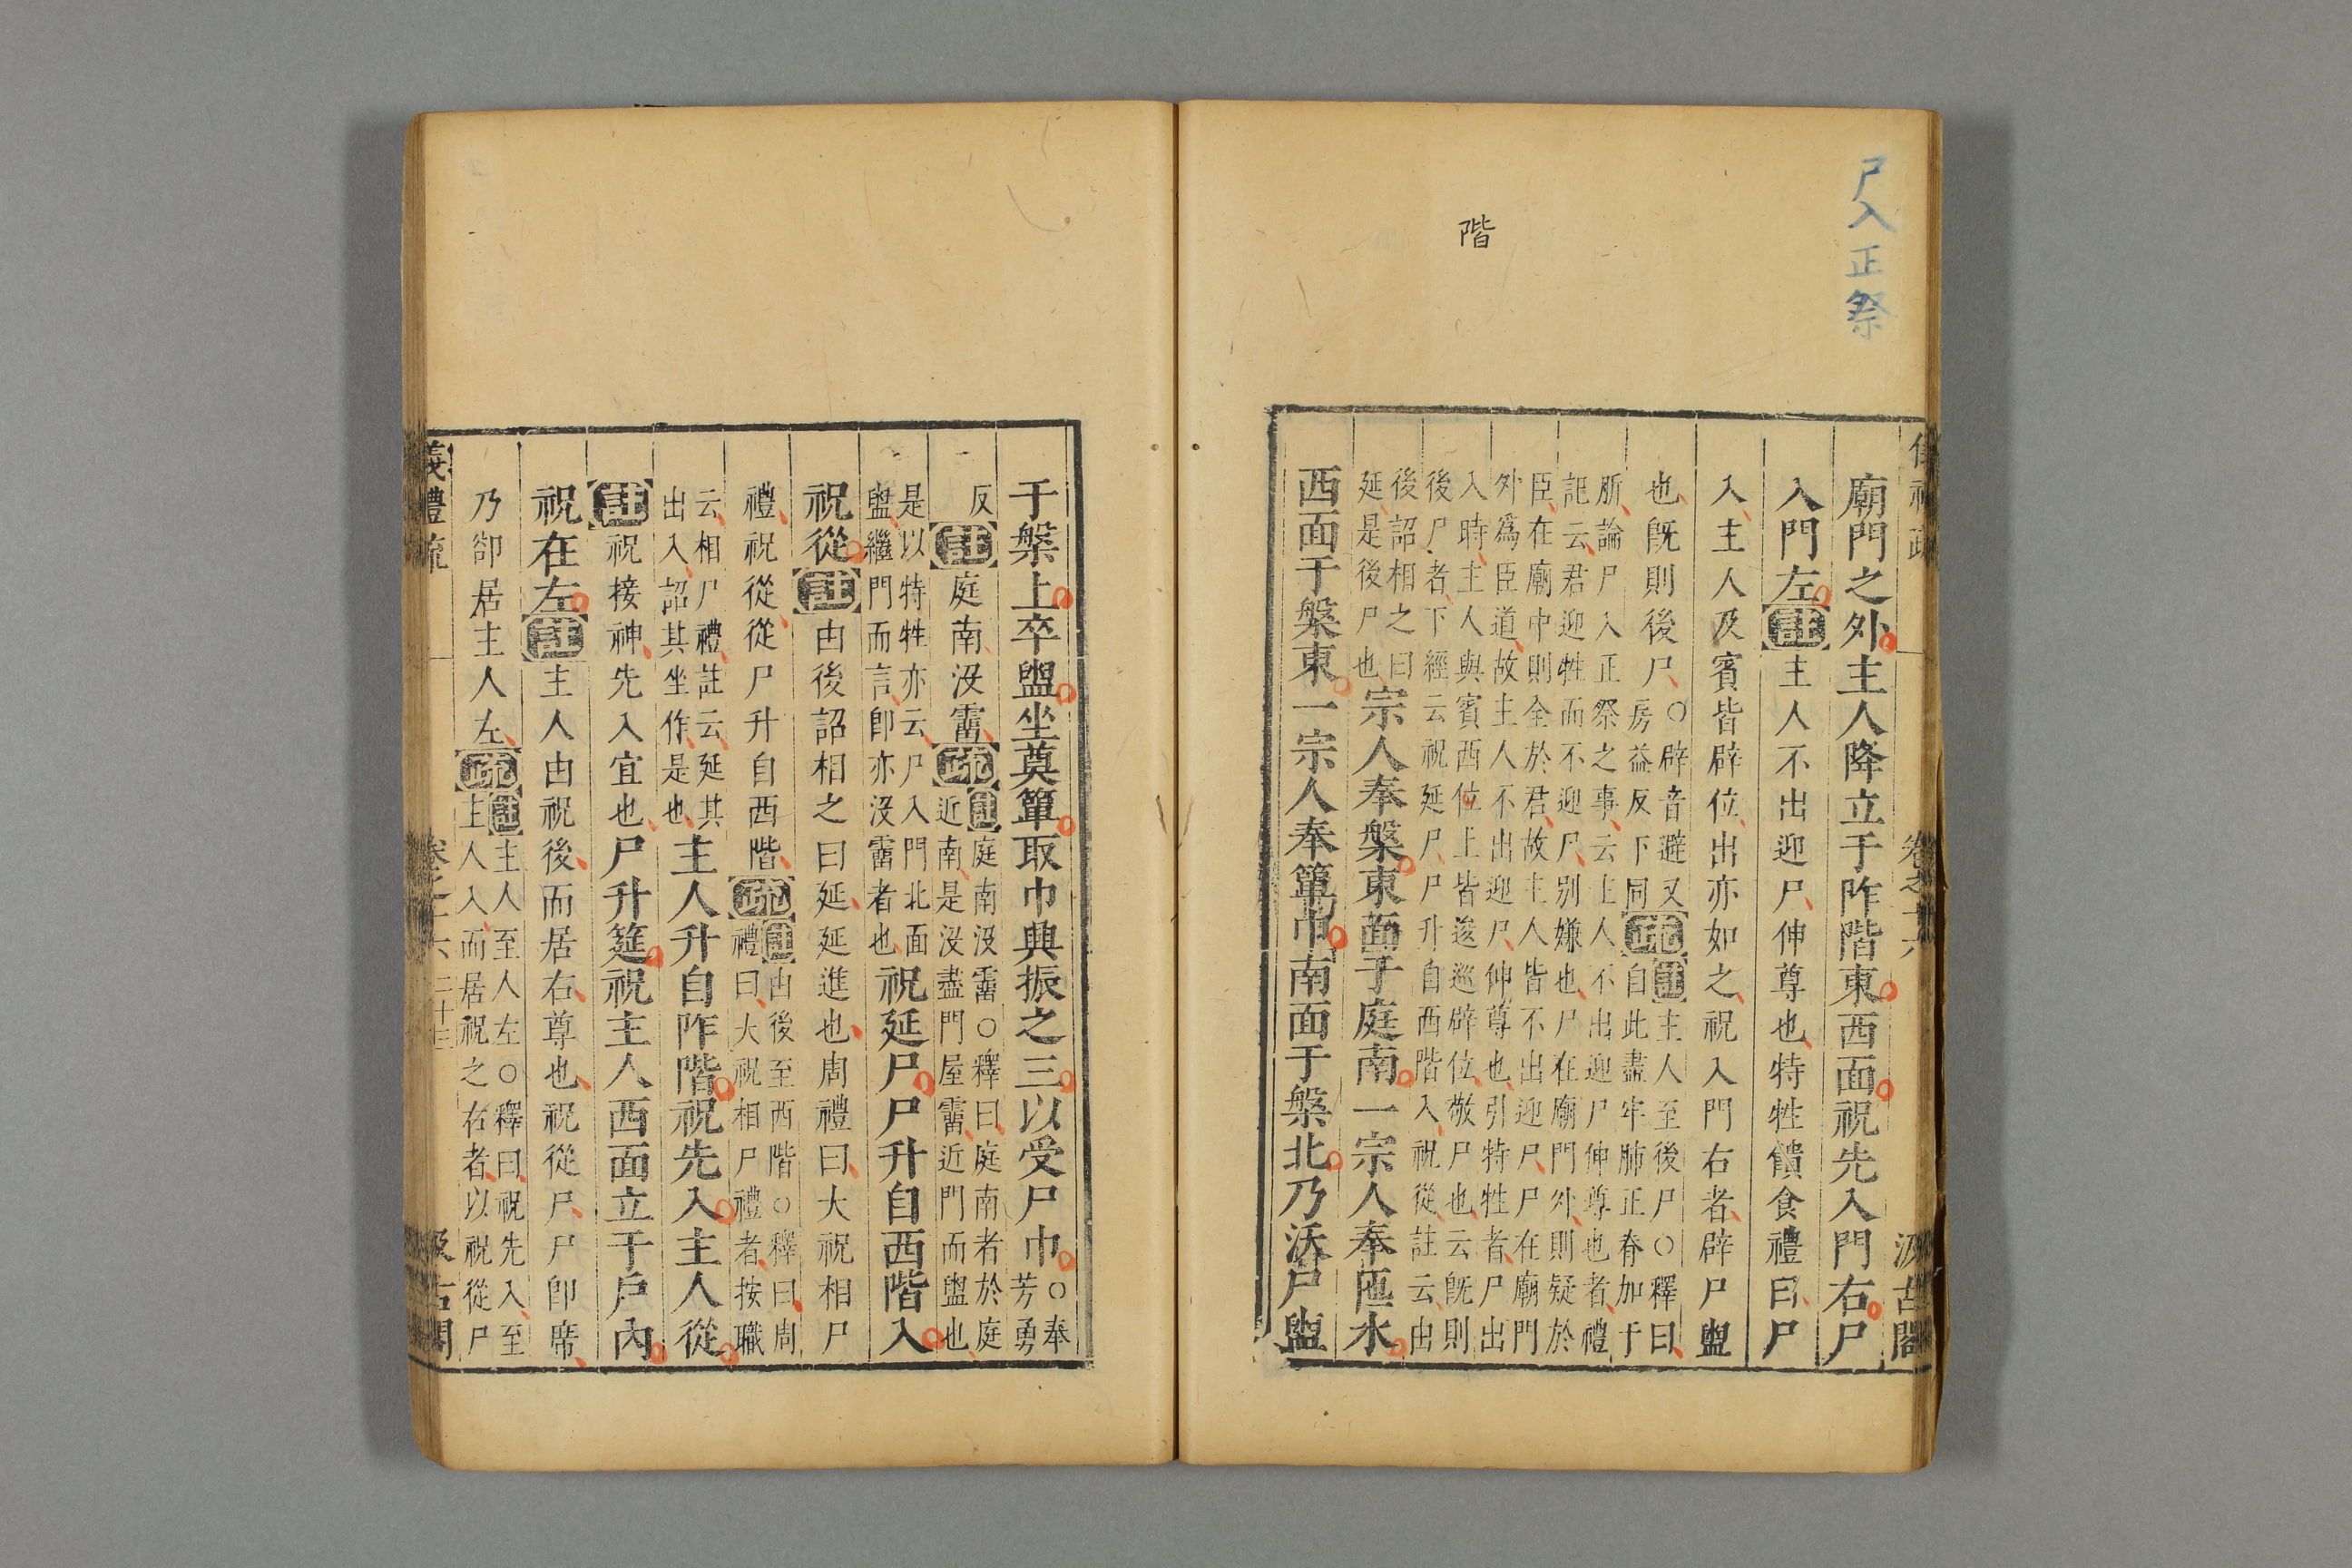 尸入正祭
階
儀禮疏 卷之十六 汲古閣
廟門之外主人降立于阼階東西面祝先入門右尸
入門左註主人不出迎尸伸尊也特牲饋食禮曰尸
入主人及賓皆辟位出亦如之祝入門右者辟尸盥
也旣則後尸
○辟音避又
房益反下同
疏
註主人至後尸○釋曰
自此盡牢肺正脊加于
肵論尸入正祭之事云主人不出迎尸伸尊也者禮
記云君迎牲而不迎尸別嫌也尸在廟門外則疑於
臣在廟中則全於君故主人皆不出迎尸尸在廟門
外爲臣道故主人不出迎尸伸尊也引特牲者尸出
入時主人與賓西位上皆逡巡辟位敬尸也云旣則
後尸者下經云祝延尸尸升自西階入祝從註云由
後詔相之曰
延是後尸也
宗人奉槃東面于庭南一宗人奉匜水
西面于槃東一宗人奉簞巾南面于槃北乃沃尸盥
于槃上卒盥坐奠簞取巾興振之三以受尸巾
○奉
芳勇
反
註庭南沒霤疏
註庭南沒霤○釋曰庭南者於庭
近南是沒盡門屋霤近門而盥也
是以特牲亦云尸入門北面
盥繼門而言卽亦沒霤者也
祝延尸尸升自西階入
祝從註由後詔相之曰延延進也周禮曰大祝相尸
禮祝從從尸升自西階疏
註由後至西階○釋曰周
禮曰大祝相尸禮者按職
云相尸禮註云延其
出入詔其坐作是也
主人升自阼階祝先入主人從
註祝接神先入宜也尸升筵祝主人西面立于戶內
祝在左註主人由祝後而居右尊也祝從尸尸卽席
乃卻居主人左疏
註主人至人左○釋曰祝先入至
主人入而居祝之右者以祝從尸
儀禮疏 卷之十六 二十三 汲古閣